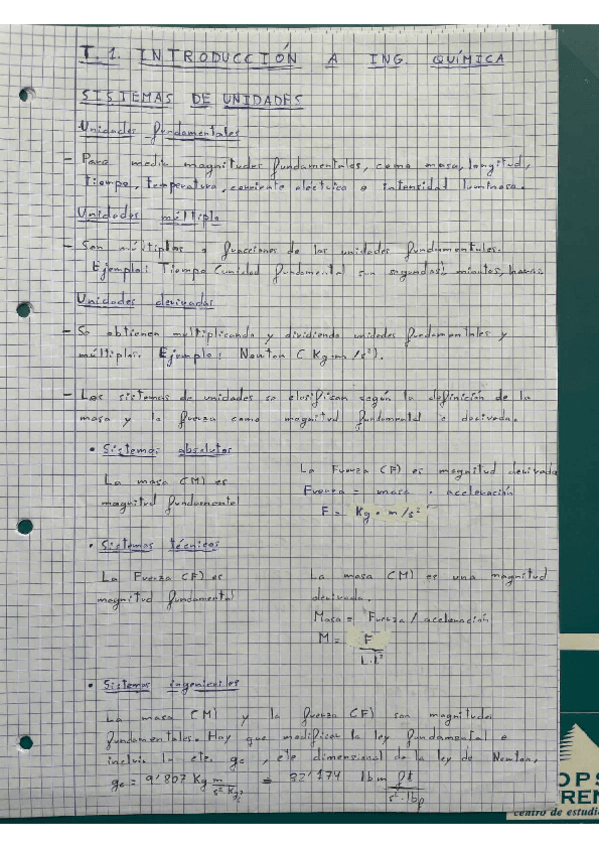 T.1. INTRODUCCIÓN A ING. QUÍMICA
SISTEMAS DE UNIDADES
Unidades fundamentales
- Para medir magnitudes fundamentales, como masa, longitud,
tiempo, temperatura, corriente eléctrica o intensidad luminosa.
Unidades múltiplo
- Son múltiplos o fracciones de las unidades fundamentales.
Ejemplo: Tiempo (unidad fundamental son segundos): minutos, horas.
Unidades derivadas
- Se obtienen multiplicando y dividiendo unidades fundamentales y
múltiplos. Ejemplo: Newton (Kg·m/s²).
- Los sistemas de unidades se clasifican según la definición de la
masa y la fuerza como magnitud fundamental o derivada.
• Sistemas absolutos
La masa (M) es
magnitud fundamental
La Fuerza (F) es magnitud derivada
Fuerza = masa · aceleración
F = Kg · m/s²
• Sistemas técnicos
La Fuerza (F) es
magnitud fundamental
La masa (M) es una magnitud
derivada.
Masa = Fuerza / aceleración
M = F
• Sistemas ingenieriles
La masa (M) y la fuerza (F) son magnitudes
fundamentales. Hay que modificar la ley fundamental e
incluir la cte. gc, cte dimensional de la ley de Newton,
gc = 9'807 Kg m / s² Kgf = 32'174 lbm ft / s²·lbf
OPS
REN
centro de estudi